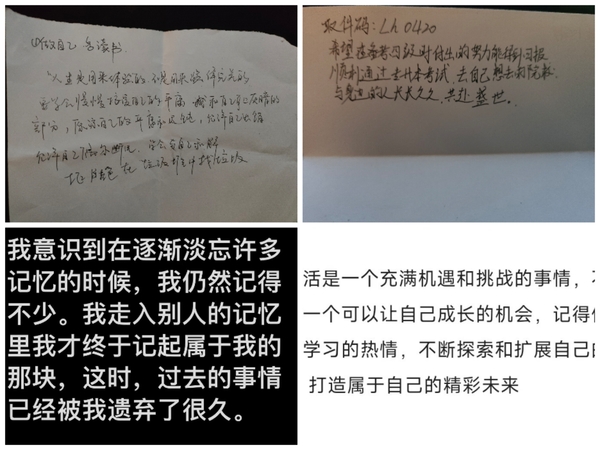 做自己 多读书
人生是用来体验的，不是用来演绎完美的
要学会慢慢接受自己的平庸
允许自己
允许自己偶尔断电
垃圾堆里找垃圾
取件码：Lh 0420
希望在备考阶段时付出的努力能得到回报
顺利通过专升本考试，去自己想去的院校
与身边的人长长久久，共赴盛世.
我意识到在逐渐淡忘许多
记忆的时候，我仍然记得
不少。我走入别人的记忆
里我才终于记起属于我的
那块，这时，过去的事情
已经被我遗弃了很久。
活是一个充满机遇和挑战的事情，
一个可以让自己成长的机会，记得
学习的热情，不断探索和扩展自己
打造属于自己的精彩未来